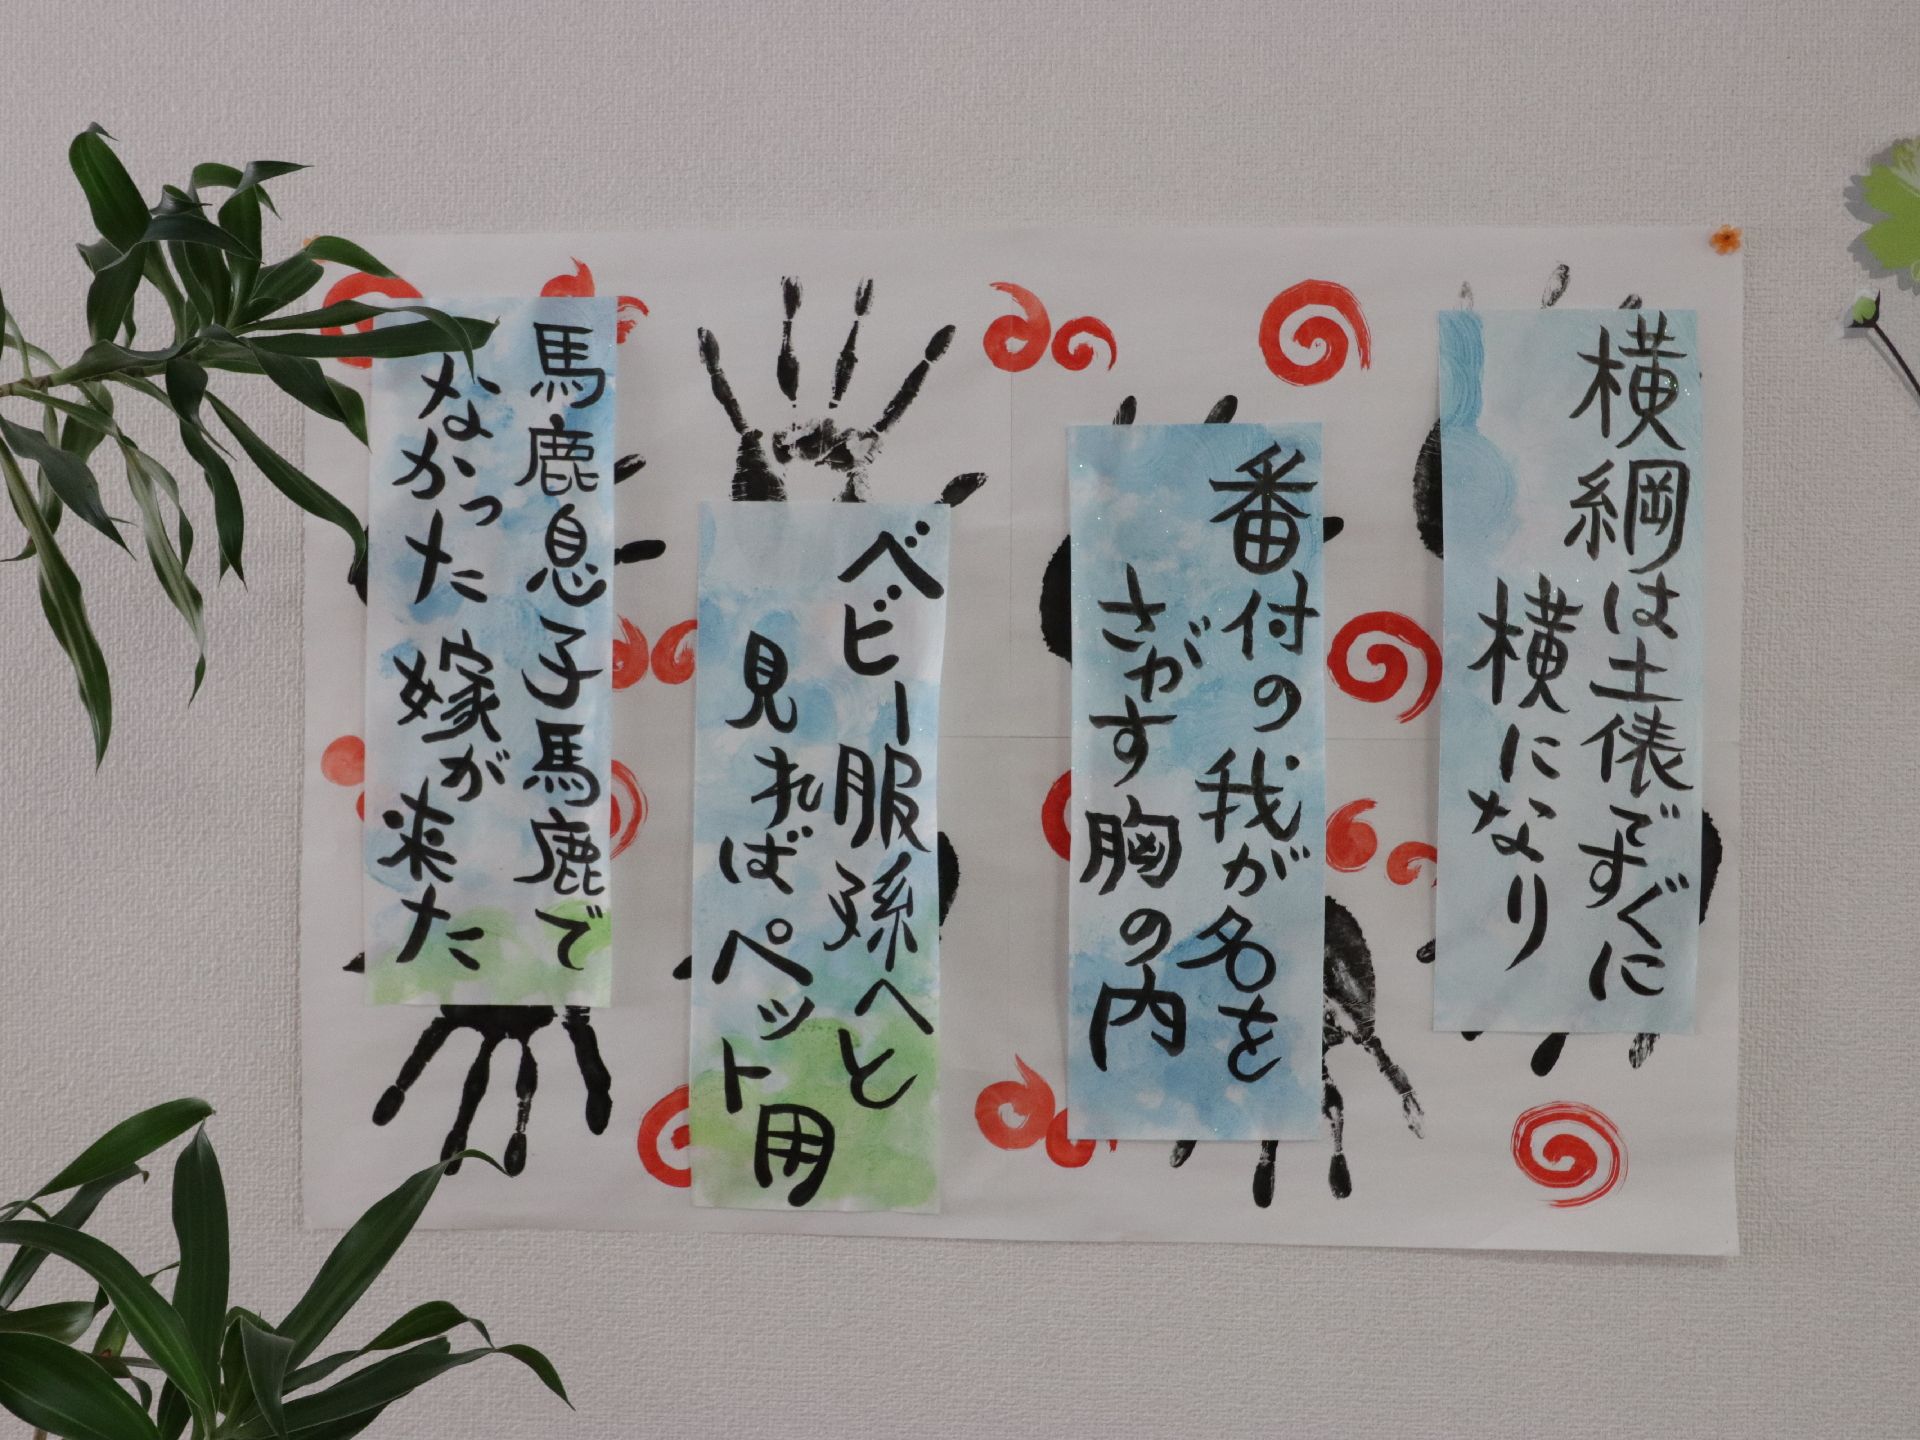 横綱は土俵ですぐに
横になり
番付の我が名を
さがす胸の内
ベビー服孫へと
見ればペット用
馬鹿息子馬鹿で
なかった嫁が来た